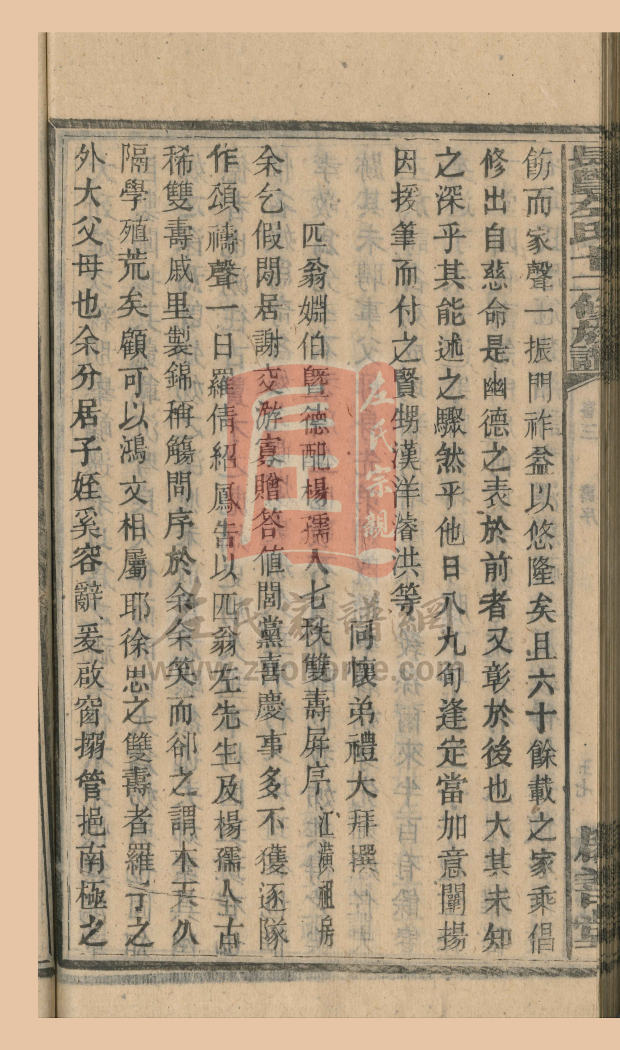 長□左氏十二修族譜
卷三
壽序
飭而家聲一振門祚益以悠隆矣且六十餘載之家乘倡
修出自慈命是幽德之表於前者又彰於後也大其未知
之深乎其能述之驟然乎他日八九旬逢定當加意闡揚
因援筆而付之賢甥漢洋濬洪等
同懷弟禮大拜撰
匹翁婣伯暨德配楊孺人七秩雙壽屏序 江黃祖房
余乞假閒居謝交游寡贈答值閭黨喜慶事多不獲逐隊
作頌禱聲一日羅倩紹鳳告以匹翁左先生及楊孺人古
稀雙壽戚里製錦稱觴問序於余余笑而卻之謂木天久
隔學殖荒矣顧可以鴻文相屬耶徐思之雙壽者羅子之
外大父母也余分居子姪奚容辭爰啟窗搦管挹南極之
左氏宗親
左氏家譜網
www.zuohome.com